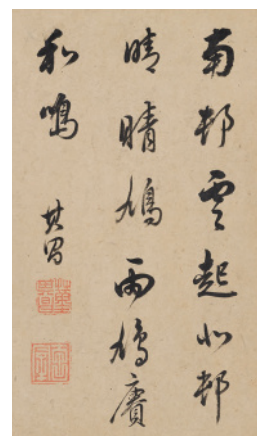 南邨雲起北邨
晴晴鳩雨鳩賡
和鳴
其昌